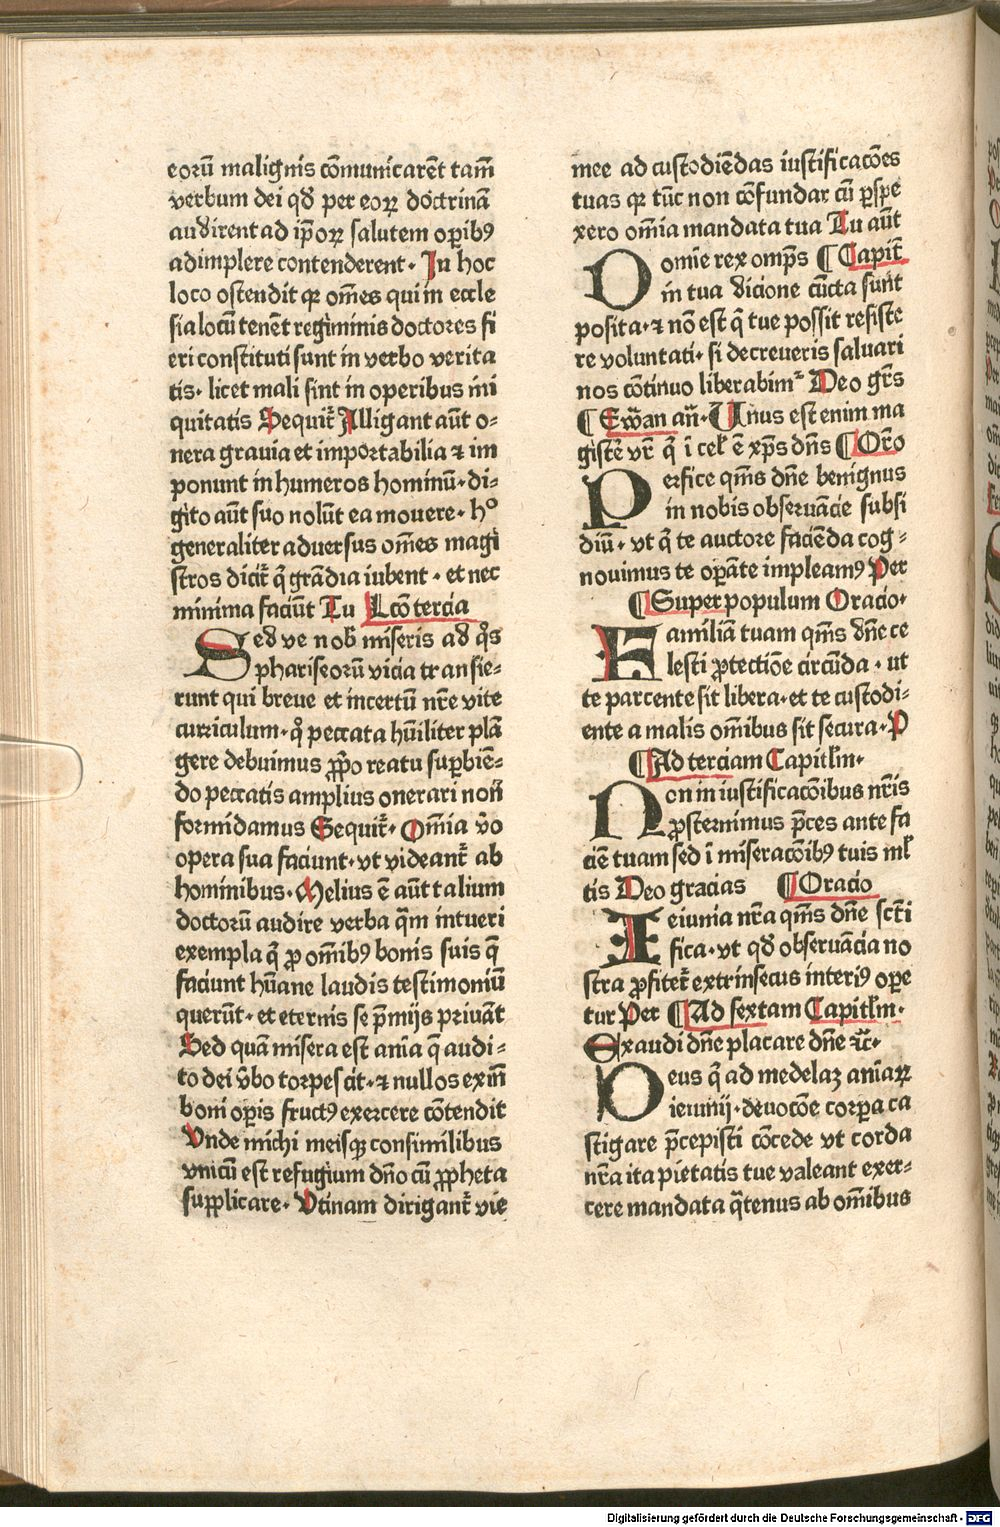 eorū malignis cōmunicarēt tam̄
verbum dei qḋ per eoꝝ doctrinā
audirent ad ip̄oꝝ salutem op̄ibꝯ
adimplere contenderent· In hoc
loco ostendit qꝛ om̄es qui in eccle
sia locū tenēt regiminis doctores fi
eri constituti sunt in verbo verita
tis· licet mali sint in operibus ini
quitatis Sequit᷑ Alligant aūt o⸗
nera grauia et importabilia ⁊ im
ponunt in humeros hominū· di⸗
gito aūt suo nolūt ea mouere· hº
generaliter aduersus om̄es magi
stros dicit᷑ q̄ grādia iubent · et nec
minima faciūt Tu Lcō tercia
Sed ve nob̄ miseris ad q̊s
phariseorū vicia transie⸗
runt qui breue et incertū nr̄e vite
curriculum· q̊ peccata hūiliter plā
gere debuimus ꝓpͦo reatu suꝑbiē⸗
do peccatis amplius onerari non̄
formidamus Sequit᷑· Om̄ia v̊o
opera sua faciunt· vt videant᷑ ab
hominibus· Melius ē aūt talium
doctorū audire verba q̄m intueri
exempla q̄ ꝓ om̄ibꝯ bonis suis q̄
faciunt hūane laudis testimoniū
querūt· et eternis se p̄mijs priuāt
Sed quā misera est ania q̄ audi⸗
to dei v̊bo torpescit· ⁊ nullos exin̄
boni oꝑis fructꝯ exercere cōtendit
Vnde michi meisqꝫ consimilibus
vnicū est refugium dn̄o cū ꝓpheta
suꝑplicare· Vtinam dirigant᷑ vie
mee ad custodiēdas iustificacōes
tuas qꝛ tūc non cōfundar cū ꝑspe
xero om̄ia mandata tua Tu aūt
Domīe rex omp̄s ¶ Capit᷑
in tua dicione cūcta sunt
posita· ⁊ nō est q̄ tue possit resiste
re voluntati· si decreueris saluari
nos cōtinuo liberabim᷑ Deo gr̄s
¶ Ewan an̄· Vnus est enim ma
gister̄ vr̄ q̄ ī cel̄ ē xp̄s dn̄s ¶ Orō
Perfice qm̄s dn̄e benignus
in nobis obseruācie subsi
diū· vt q̄ te auctore faciēda cog⸗
nouimus te oꝑāte impleamꝯ Per
¶ Super populum Oracio·
Familiā tuam qm̄s dn̄e ce
lesti ꝓtectiōe circūda · ut
te parcente sit libera· et te custodi⸗
ente a malis om̄ibus sit secura· P
¶ Ad terciam Capitl̄m·
Non in iustificacōibus nr̄is
ꝓsternimus p̄ces ante fa
ciē tuam sed ī miseracōibꝯ tuis ml̄
tis Deo gracias ¶ Oracio
Ieiunia nr̄a qm̄s dn̄e sct̄i
fica· vt qḋ obseruācia no
stra ꝓfitet᷑ extrinsecus interiꝯ oꝑe
tur Per ¶ Ad sextam Capitl̄m·
Exaudi dn̄e placare dn̄e ⁊c̄·
Deus q̄ ad medelaꝫ aniaꝝ
ieiunij· deuocōe corꝑa ca
stigare p̄cepisti cōcede vt corda
nr̄a ita pietatis tue valeant exer⸗
cere mandata q̄tenus ab om̄ibus
Digitalisierung gefördert durch die Deutsche Forschungsgemeinschaft - DFG